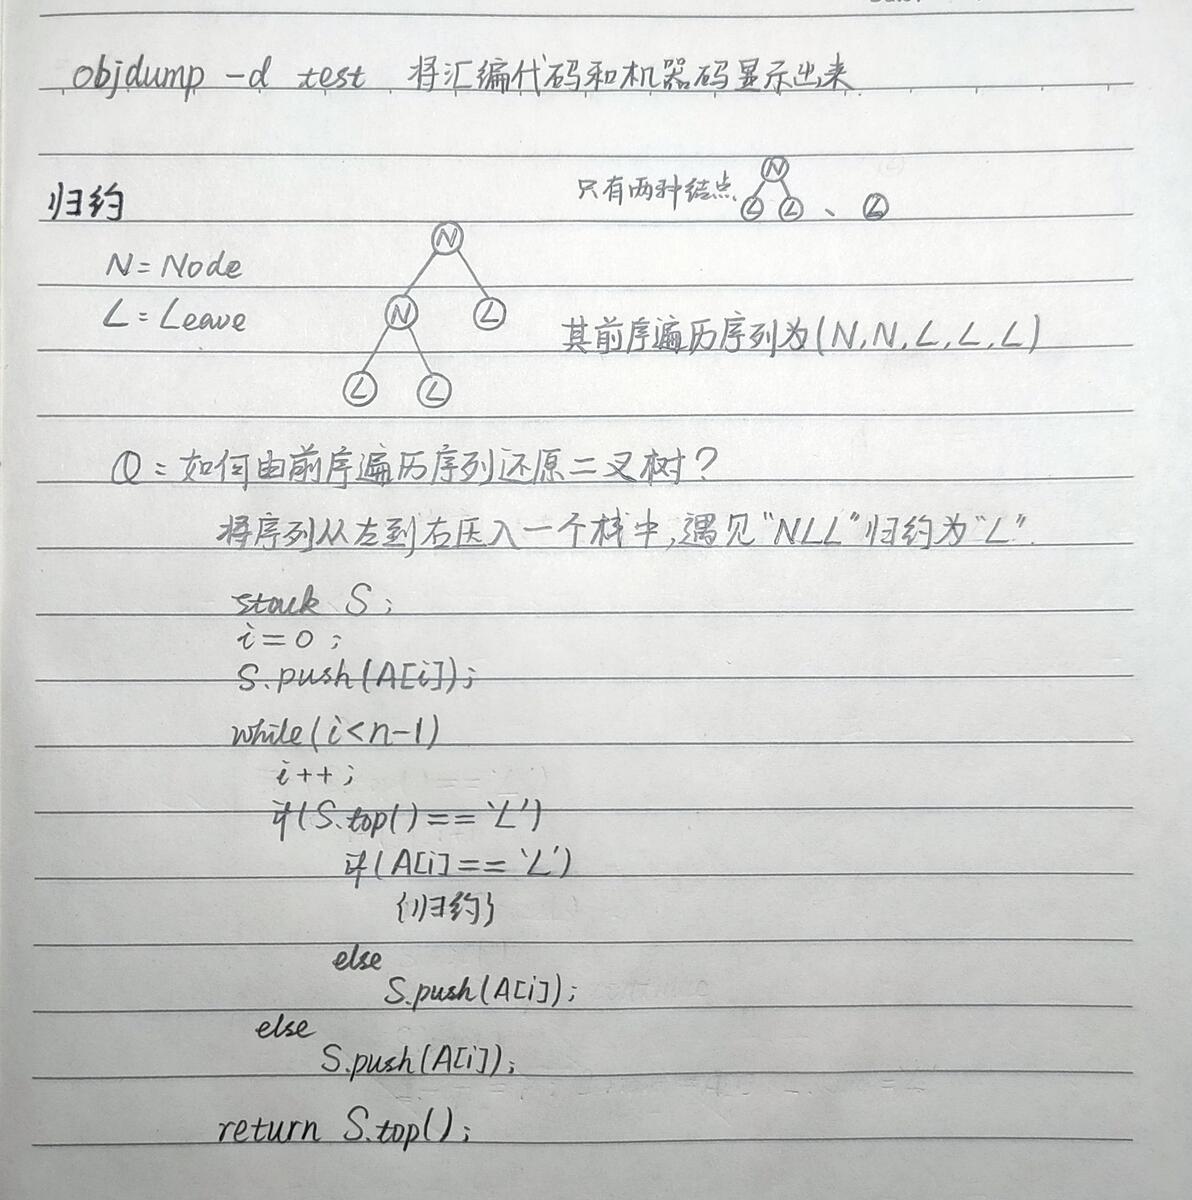 objdump -d test 将汇编代码和机器码显示出来
归约
只有两种结点
N
L L 、 L
N = Node
L = Leave
N
N L
L L
其前序遍历序列为(N,N,L,L,L)
Q:如何由前序遍历序列还原二叉树?
将序列从左到右压入一个栈中,遇见"NLL"归约为"L".
stack S;
i=0;
S.push(A[i]);
while(i<n-1)
i++;
if(S.top()=='L')
if(A[i]=='L')
{归约}
else
S.push(A[i]);
else
S.push(A[i]);
return S.top();